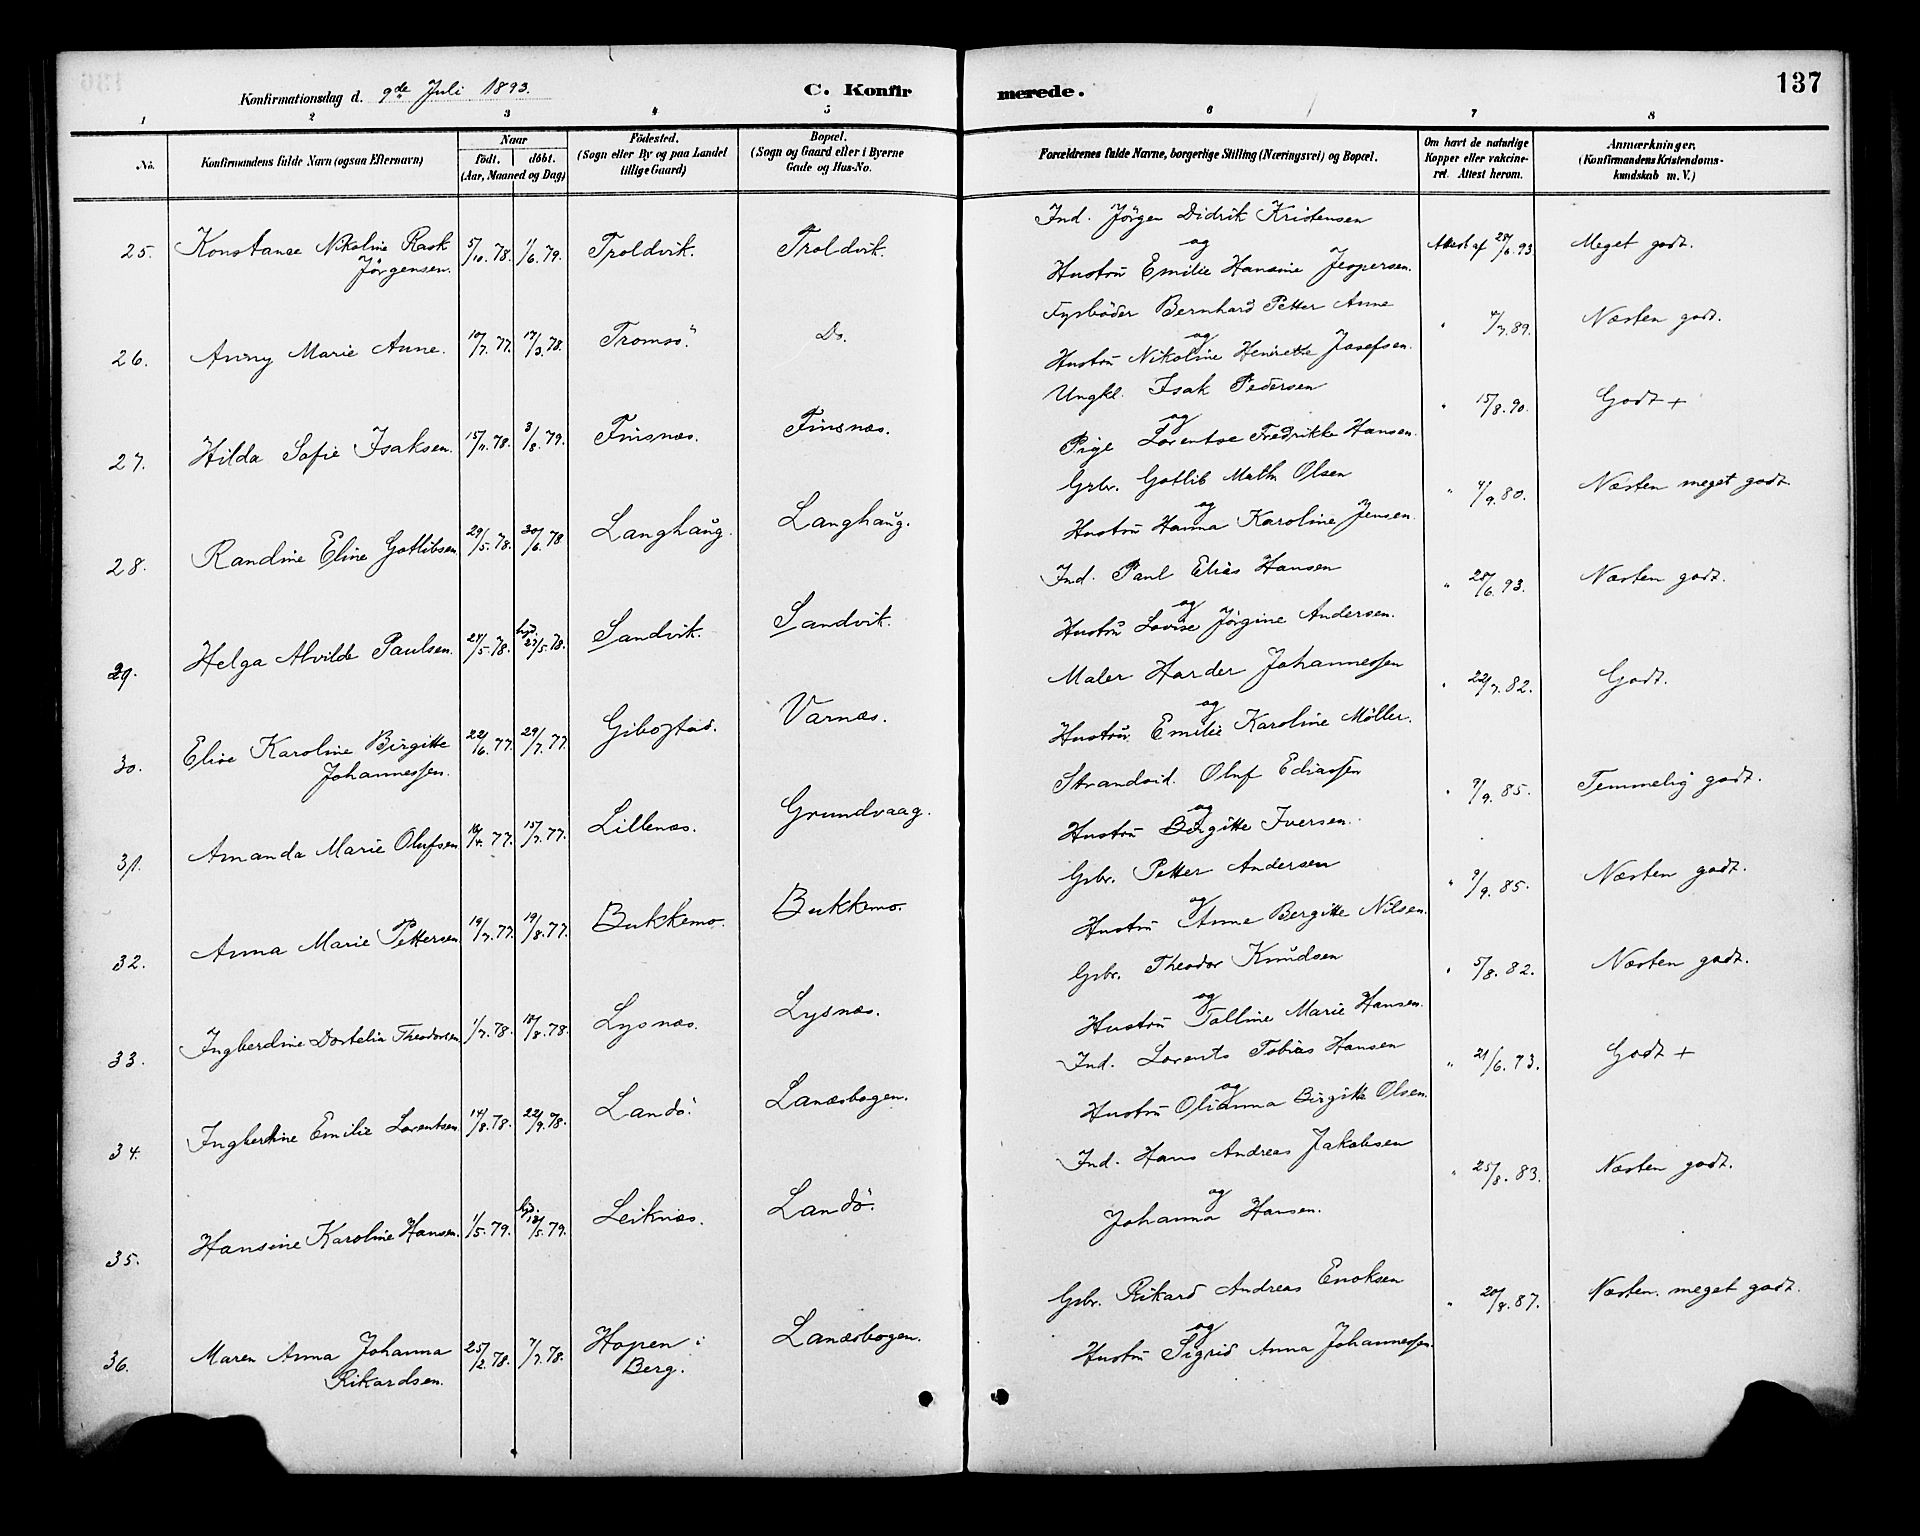 137
Konfirmationsdag d. 9de Juli 1893.
C. Konfirmerede.
1 2 3 4 5 6 7 8
No. Konfirmandens fulde Navn (ogsaa Efternavn) Naar født. døbt. (Aar, Maaned og Dag) Fødested. (Sogn eller By og paa Landet tillige Gaard) Bopæl. (Sogn og Gaard eller i Byerne Gade og Hus-No. Forældrenes fulde Navne, borgerlige Stilling (Næringsvei) og Bopæl. Om havt de naturlige Kopper eller vakcineret. Attest herom. Anmærkninger. (Konfirmandens Kristendomskundskab m. V.)
25. Konstanse Nikoline Rask Jørgensen. 5/10.78. 1/6.79. Troldvik. Troldvik. Ind. Jörgen Didrik Kristensen og Hustru Emilie Hansine Jespersen. Attest af 28/6.93. Meget godt.
26. Anny Marie Aune. 10/7.77. 17/3.78. Tromsö. Do. Fyrböder Bernhard Petter Aune og Hustru Nikoline Henrette Josefsen. " 4/7.89. Næsten godt.
27. Hilda Sofie Isaksen. 15/7.78. 3/8.79. Finsnæs. Finsnæs. Ungkl. Isak Pedersen og Pige Lorentse Fredrikke Hansen. " 15/8.90. Godt +
28. Randine Eline Gotlibsen. 29/5.78. 30/6.78 Langhaug. Langhaug. Gsbr. Gotlib Math Olsen og Hustru Hanna Karoline Jensen. " 4/9.80. Næsten meget godt.
29. Helga Alvilde Paulsen. 21/5.78. hjd. 27/5.78. Sandvik. Sandvik. Ind. Paul Elias Hansen og Hustru Lovise Jørgine Andersen. " 28/6.93. Næsten godt.
30. Elise Karoline Birgitte Johannessen. 22/6.77. 29/7.77. Gibostad. Varnæs. Maler Harder Johannessen og Hustru Emilie Karoline Møller. " 22/7.82. Godt.
31. Amanda Marie Olufsen 10/4.77. 15/7.77. Lillenæs. Grundvaag. Strandsid. Oluf Ediassen og Hustru Birgitte Iversen. " 9/9.85. Temmelig godt.
32. Anna Marie Pettersen. 19/7.77. 19/8.77. Bukkemo. Bukkemo. Gsbr. Petter Andersen og Hustru Anne Bergitte Nilsen. " 9/9.85. Næsten godt.
33. Ingberdine Dortelia Theodorsen 1/7.78. 18/8.78. Lysnæs. Lysnæs. Gsbr. Theodor Knudsen og Hustru Talline Marie Hansen. " 5/8.82. Næsten godt.
34. Ingbertine Emilie Lorentsen. 14/8.78. 22/9.78. Landö. Lanæsbogen. Ind. Lorents Tobias Hansen og Hustru Olianna Birgitte Olsen. " 21/6.73. Godt +
35. Hansine Karoline Hansen. 1/5.79. hjd. 18/5.79. Leiknæs. Landö. Ind. Hans Andreas Jakobsen og Johanna Hansen. " 25/8.83. Næsten godt.
36. Maren Anna Johanna Rikardsen. 25/2.78. 7/7.78. Hopen i Berg. Lanæsbogen. Gsbr. Rikard Andreas Enoksen og Hustru Sigrid Anna Johannessen. " 20/8.87. Næsten meget godt.